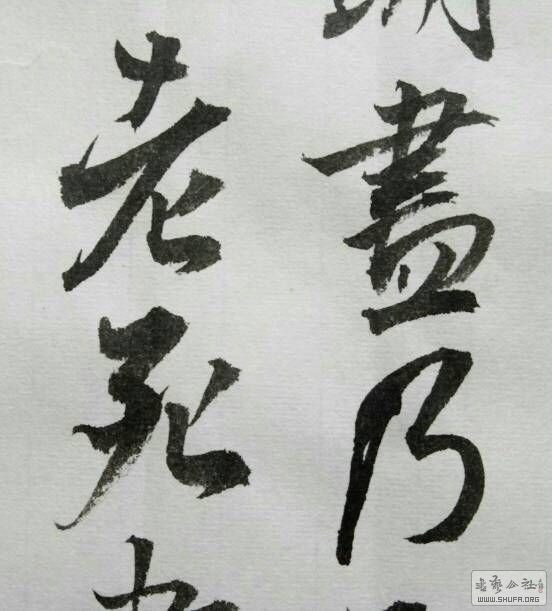 盡乃
老死
書藝公社
WWW.SHUFA.ORG